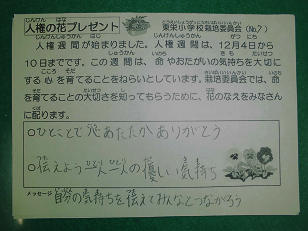 人権の花プレゼント
東栄小学校栽培委員会(No.7)
人権週間が始まりました。人権週間は、12月4日から
10日までです。この週間は、命やおたがいの気持ちを大切に
する心を育てることをねらいとしています。栽培委員会では、命
を育てることの大切さを知ってもらうために、花のなえをみなさん
に配ります。
○ひとことで心あたたか ありがとう
○伝えよう一人一人の優しい気持ち
メッセージ 自分の気持ちを伝えてみんなとつながろう